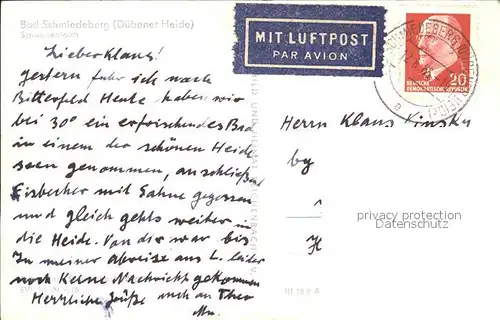 Bad Schmiedeberg (Dübener Heide)
Schwanenteich
MIT LUFTPOST
PAR AVION
20
DEUTSCHE
DEMOKRATISCHE REPUBLIK
Lieber Klaus!
gestern fuhr ich nach
Bitterfeld Heute haben wir
bei 30° ein erfrischendes Bad
in einem der schönen Heide
seen genommen, anschließend
Eisbecher mit Sahne gegessen
und gleich gehts weiter in
die Heide. Von dir war bis
zu meiner Abreise aus L. leider
noch keine Nachricht gekommen
Herrliche Grüße auch an Theo
Herrn Klaus Kinsky
privacy protection
Datenschutz